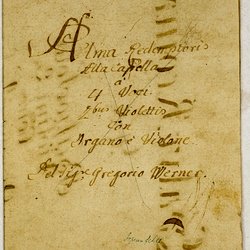 Alma Redemptoris
Alla Capella
à
4 Voci
2bus Violettis
Con
Organo è Violone.
Del Sigre Gregorio Werner.